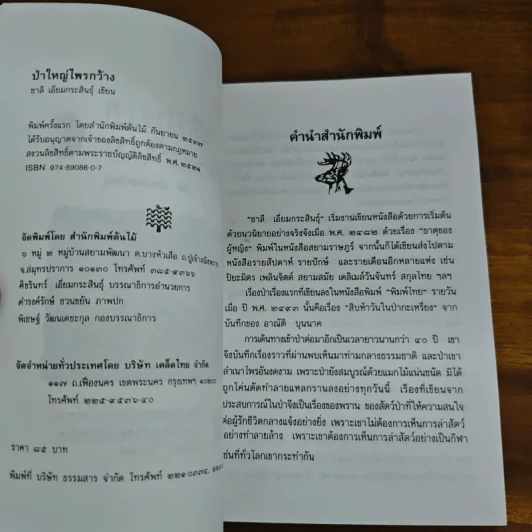 ป่าใหญ่ไพรกว้าง
ชาลี เอี่ยมกระสินธุ์ เขียน
พิมพ์ครั้งแรก โดยสำนักพิมพ์ต้นไม้ กันยายน ๒๕๓๓
ได้รับอนุญาตจากเจ้าของลิขสิทธิ์ถูกต้องตามกฎหมาย
สงวนลิขสิทธิ์ตามพระราชบัญญัติลิขสิทธิ์ พ.ศ. ๒๕๒๑
ISBN 974-89086-0-7
จัดพิมพ์โดย สำนักพิมพ์ต้นไม้
๖ หมู่ ๒ หมู่บ้านสยามพัฒนา ต.บางหัวเสือ ถ.ปู่เจ้าสมิงพราย
จ.สมุทรปราการ ๑๐๑๓๐ โทรศัพท์ ๓๘๔-๙๓๖๖
ศิรรินทร์ เอี่ยมกระสินธุ์ บรรณาธิการอำนวยการ
ดำรงค์รักษ์ ชวนชยัน ภาพปก
พิเชษฐ์ วัฒนเดชะกุล กองบรรณาธิการ
จัดจำหน่ายทั่วประเทศโดย บริษัท เคล็ดไทย จำกัด
๑๑๗ ถ.เฟื่องนคร เขตพระนคร กรุงเทพฯ
โทรศัพท์ ๒๒๕-๙๕๓๖-๔๐
ราคา ๘๕ บาท
พิมพ์ที่ บริษัท ธรรมสาร จำกัด โทรศัพท์ ๒๒๑-๐๓๗๔,
คำนำสำนักพิมพ์
"ชาลี เอี่ยมกระสินธุ์" เริ่มงานเขียนหนังสือด้วยการเริ่มต้น
ด้วยนวนิยายอย่างจริงจังเมื่อ พ.ศ. ๒๔๘๒ ด้วยเรื่อง "ธาตุของ
ผู้หญิง" พิมพ์ในหนังสือสยามราษฎร์ จากนั้นก็ได้เขียนส่งไปตาม
หนังสือรายสัปดาห์ รายปักษ์ และรายเดือนอีกหลายแห่ง เช่น
ปิยะมิตร เพลินจิตต์ สยามสมัย เดลิเมล์วันจันทร์ สกุลไทย ฯลฯ
เรื่องป่าเรื่องแรกที่เขียนลงในหนังสือพิมพ์ "พิมพ์ไทย" รายวัน
เมื่อ ปี พ.ศ. ๒๔๙๓ นั้นคือเรื่อง "สิบห้าวันในป่ากะเหรี่ยง" จาก
บันทึกของ อาณัติ บุนนาค
การเดินทางเข้าป่าต่อมาอีกเป็นเวลายาวนานกว่า ๔๐ ปี เขา
จึงบันทึกเรื่องราวที่ผ่านพบเห็นมาท่ามกลางธรรมชาติ และป่าเขา
ลำเนาไพรอันงดงาม เพราะป่ายังสมบูรณ์ด้วยแมกไม้แน่นขนัด มิได้
ถูกโค่นตัดทำลายแหลกรานลงอย่างทุกวันนี้ เรื่องที่เขียนจาก
ประสบการณ์ในป่าจึงเป็นเรื่องของพราน ของสัตว์ป่าที่ให้ความสนใจ
ต่อผู้รักชีวิตกลางแจ้งอย่างยิ่ง เพราะเขาไม่ต้องการการล่าสัตว์
อย่างทำลายล้าง เพราะเขาต้องการเห็นการล่าสัตว์อย่างเป็นกีฬา
เช่นที่ทั่วโลกเขากระทำกัน